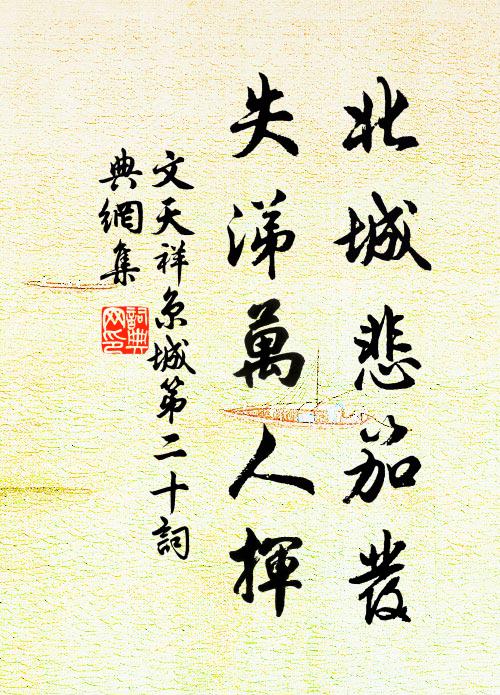 北城悲笳發
失涕萬人揮
文天祥京城第二十詞
典網集
詞典
网印